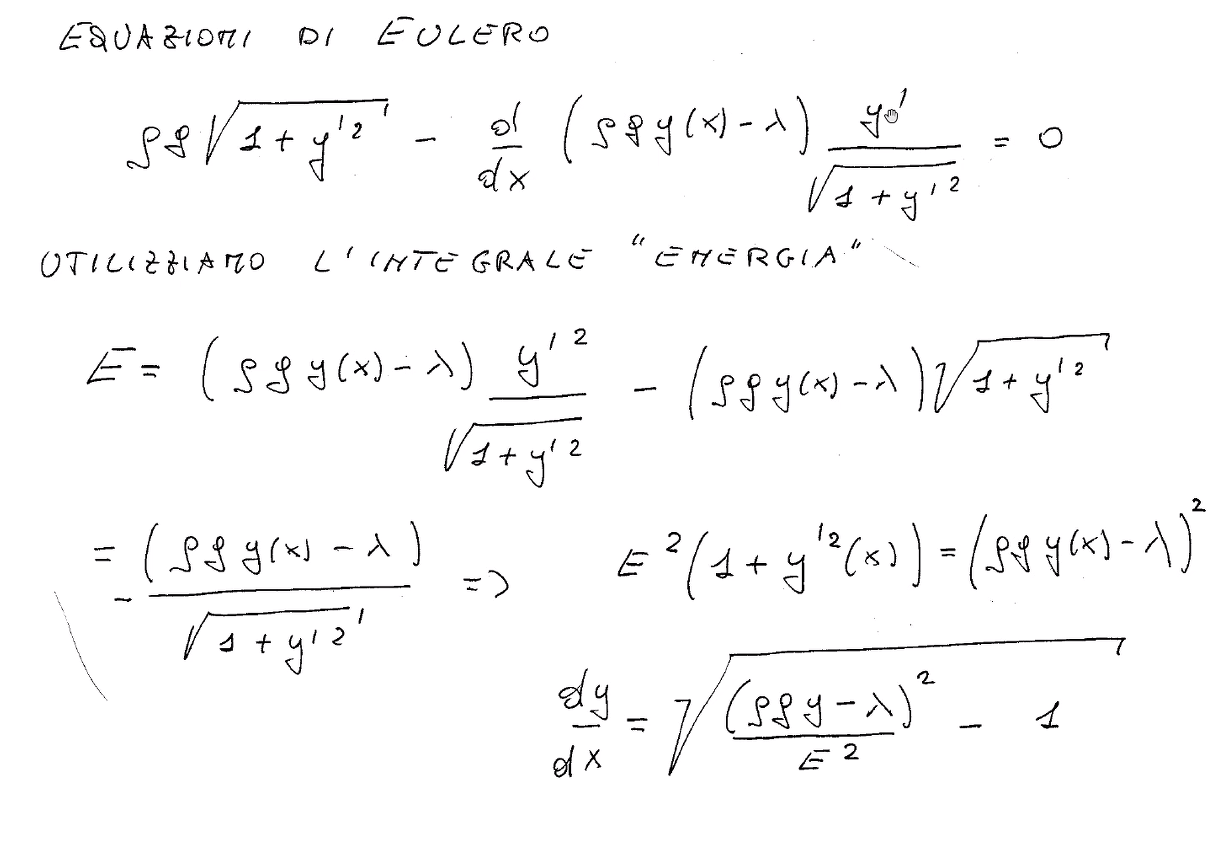 EQUAZIONI DI EULERO
ρg√(1 + y'²) - d/dx (ρg y(x) - λ) y'/√(1 + y'²) = 0
UTILIZZIAMO L'INTEGRALE "ENERGIA"
E = (ρg y(x) - λ) y'²/√(1 + y'²) - (ρg y(x) - λ)√(1 + y'²)
= - (ρg y(x) - λ)/√(1 + y'²) => E²(1 + y'²(x)) = (ρg y(x) - λ)²
dy/dx = √((ρg y - λ)²/E² - 1)